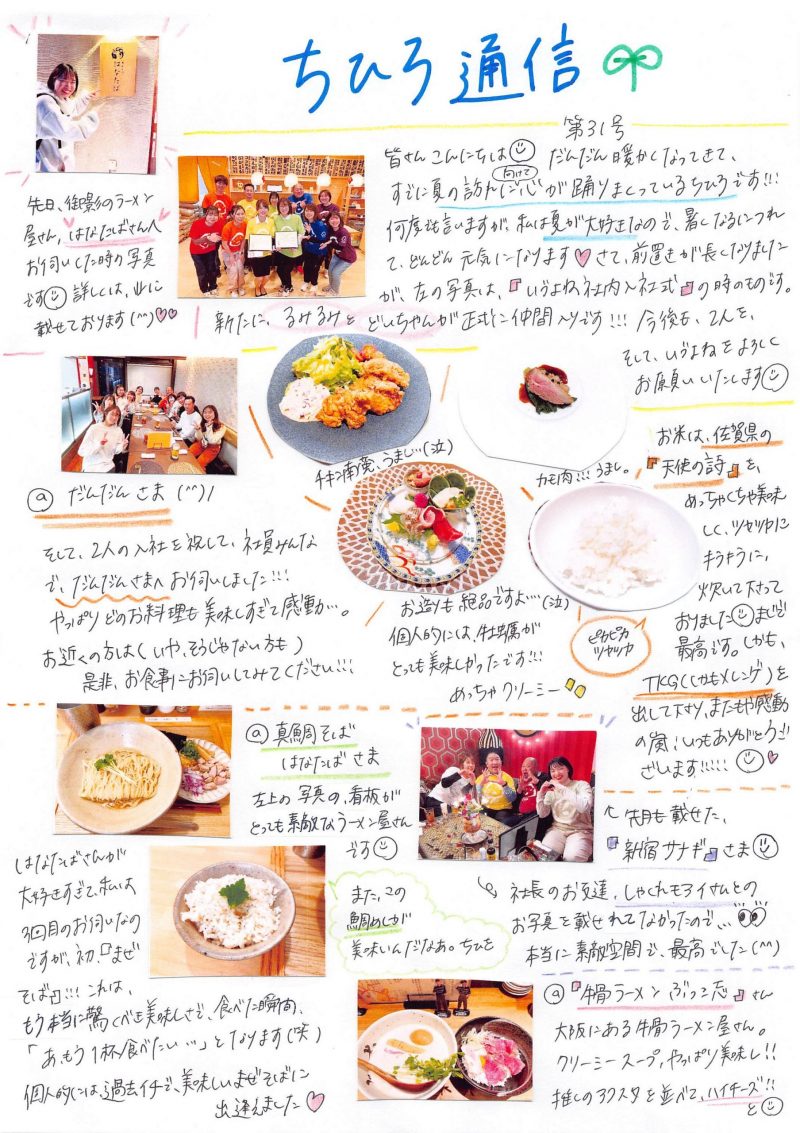 ちひろ通信
第31号
皆さんこんにちは だんだん暖かくなってきて、
すでに夏の訪れに向けて心が踊りまくっているちひろです!!!
何度も言いますが、私は夏が大好きなので、暑くなるにつれ
て、どんどん元気になります♡さて、前置きが長くなりました
が、左の写真は、『いろよね社内入社式』の時のものです。
新たに、るみるみとどいちゃんが正式に仲間入りです!!! 今後も、2人を、
そして、いろよねをよろしく
お願いいたします
はなたば
先日、御影のラーメン
屋さん、はなたばさんへ
お伺いした時の写真
です 詳しくは、
載せております(^^)♡♡
@ だんだんさま(^^)/
そして、2人の入社を祝して、社員みんな
で、だんだんさまへお伺いしました!!!
やっぱりどのお料理も美味しすぎて感動…。
お近くの方は(いや、そうじゃない方も)
是非、お食事にお伺いしてみてください!!!
チキン南蛮、うまし…(泣)
カモ肉!!! うまし。
お造りも絶品ですよ…(泣)
個人的には、牡蠣が
とっても美味しかったです!!!
めっちゃクリーミー
お米は、佐賀県の
『天使の詩』を、
めっちゃくちゃ美味
しく、ツヤツヤに
キラキラに、
炊いて下さって
おりました まじで
最高です。しかも、
TKG(しかもメレンゲ)を
出して下さり、またもや感動
の嵐!いつもありがとうご
ざいます!!!!!♡
ピカピカ
ツヤツヤ
@ 真鯛そば
はなたば さま
左上の写真の、看板が
とっても素敵なラーメン屋さん
です
はなたばさんが
大好きすぎて、私は
3回目のお伺いなの
ですが、初、『まぜ
そば』!!! これは、
もう本当に驚くべき美味しさで、食べた瞬間、
「あ、もう1杯食べたい…」となります(笑)
個人的には、過去イチで、美味しいまぜそばに
出逢えました♡
また、この
鯛めしが
美味いんだなあ。ちひを
先月も載せた、
『新宿サナギ』さま
社長のお友達、しゃくれモアイさんとの
お写真を載せれてなかったので…
本当に素敵空間で、最高でした(^^)
@『牛骨ラーメン ぶっこ志』さん
大阪にある牛骨ラーメン屋さん。
クリーミースープ、やっぱり美味し!!
推しのアクスタを並べて、ハイチーズ!!
と